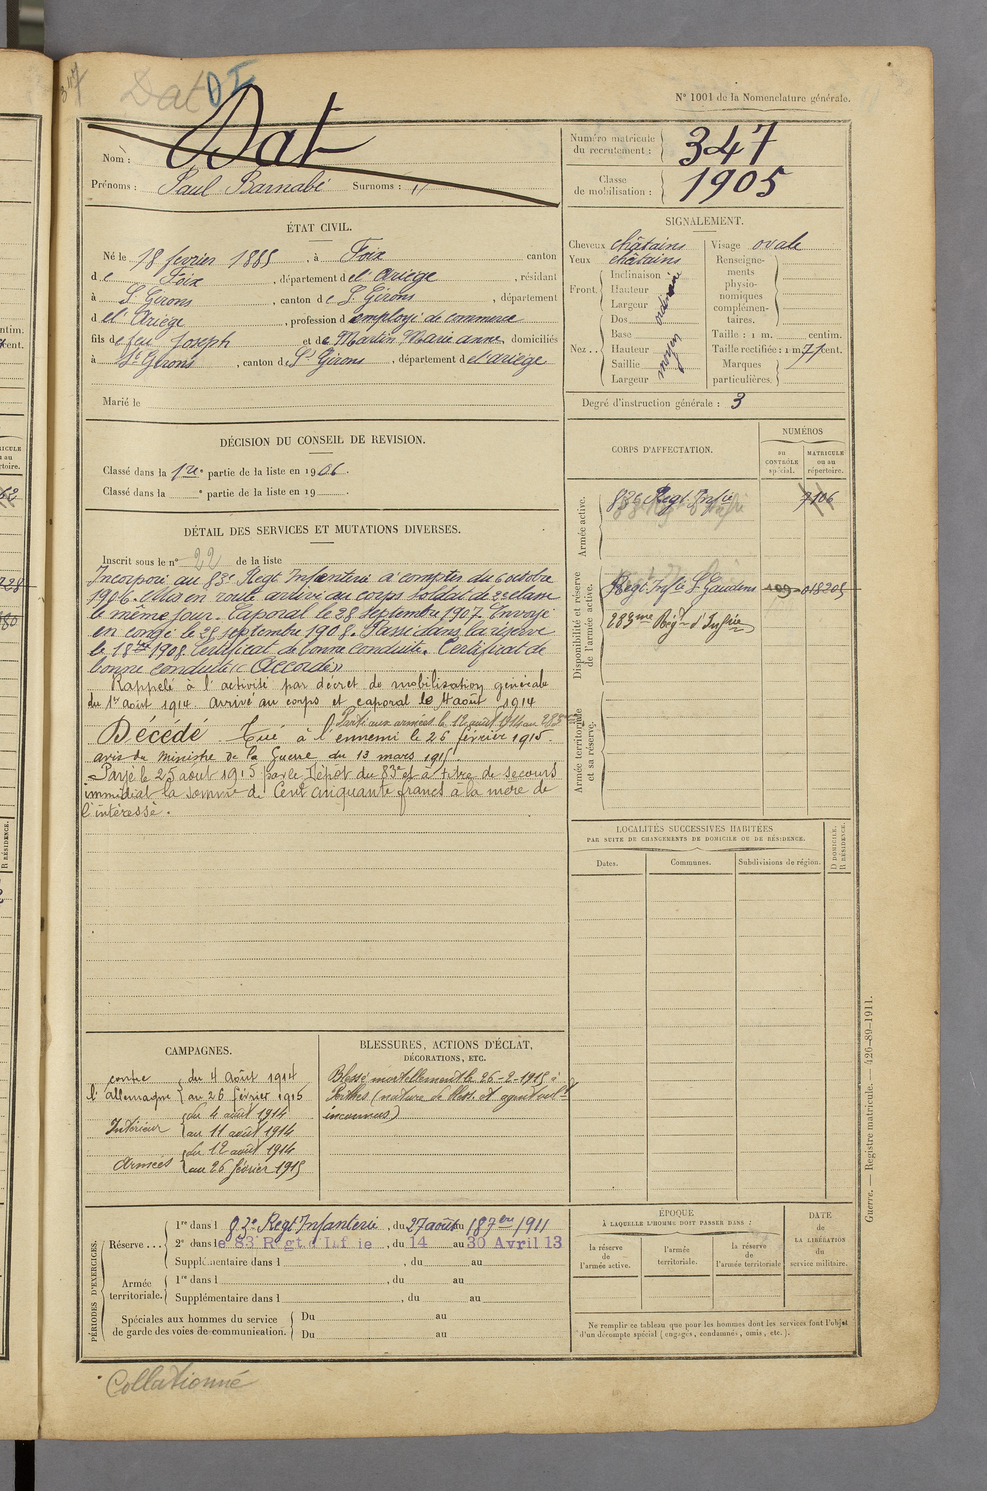 347
Dat DI
N° 1001 de la Nomenclature générale.
Nom : Dat
Prénoms : Paul Barnabé Surnoms : "
Numéro matricule du recrutement : 347
Classe de mobilisation : 1905
ÉTAT CIVIL.
Né le 18 fevrier 1885, à Foix canton
de Foix, département de l'Ariège, résidant
à St Girons, canton de St Girons, département
de l'Ariège, profession d'employé de commerce
fils de feu Joseph et de Martin Marie anne, domiciliés
à St Girons, canton de St Girons, département de l'ariège
Marié le
SIGNALEMENT.
Cheveux châtains
Yeux châtains
Front. Inclinaison Hauteur Largeur
Nez.. Dos Base Hauteur Saillie Largeur moyen
Visage ovale
Renseignements physionomiques complémentaires.
Taille : 1 m. centim.
Taille rectifiée : 1 m. 71 cent.
Marques particulières.
Degré d'instruction générale : 3
DÉCISION DU CONSEIL DE REVISION.
Classé dans la 1re partie de la liste en 1906.
Classé dans la e partie de la liste en 19
DÉTAIL DES SERVICES ET MUTATIONS DIVERSES.
Inscrit sous le n° 22 de la liste
Incorporé au 83e Regt Infanterie à compter du 6 octobre
1906. Mis en route arrivé au corps soldat de 2e classe
le même jour. Caporal le 28 septembre 1907. Envoyé
en congé le 25 septembre 1908. Passé dans la réserve
le 1 8bre 1908. Certificat de bonne conduite. Certificat de
bonne conduite « Accordé »
Rappelé à l'activité par décret de mobilisation générale
du 1er aout 1914. arrivé au corps et caporal le 4 août 1914
Parti aux armées le 12 août 1914 au 283me
Décédé Tué à l'ennemi le 26 février 1915.
avis du Ministre de la Guerre du 13 mars 1915.
Payé le 25 aout 1915 par le Dépôt du 83e et à titre de secours
immédiat la somme de Cent cinquante francs à la mère de
l'intéressé.
CORPS D'AFFECTATION.
NUMÉROS
au CONTRÔLE spécial.
MATRICULE ou au répertoire.
Armée active.
83e Regt Infie 7106
Disponibilité et réserve de l'armée active.
Regt Infie St Gaudens 018205
283me Rég't d'Infrie
Armée territoriale et sa réserve.
LOCALITÉS SUCCESSIVES HABITÉES
PAR SUITE DE CHANGEMENTS DE DOMICILE OU DE RÉSIDENCE.
Dates. Communes. Subdivisions de région. D DOMICILE. R RÉSIDENCE.
CAMPAGNES.
contre l'allemagne du 4 Août 1914
au 26 février 1915
Intérieur du 4 août 1914
au 11 août 1914
Armées du 12 août 1914
au 26 février 1915
BLESSURES, ACTIONS D'ÉCLAT,
DÉCORATIONS, ETC.
Blessé mortellement le 26-2-1915 à
Perthes (nature de bless. et agent vult
inconnus)
PÉRIODES D'EXERCICES.
Réserve ... 1re dans l 83e Regt Infanterie, du 27 août au 18 7bre 1911
2e dans le 83 Regt d'Infie, du 14 au 30 Avril 13
Supplémentaire dans l , du au
Armée territoriale. 1re dans l , du au
Supplémentaire dans l , du au
Spéciales aux hommes du service de garde des voies de communication. Du au
Du au
ÉPOQUE
À LAQUELLE L'HOMME DOIT PASSER DANS :
la réserve de l'armée active.
l'armée territoriale.
la réserve de l'armée territoriale
DATE de LA LIBÉRATION du service militaire.
Ne remplir ce tableau que pour les hommes dont les services font l'objet
d'un décompte spécial (engagés, condamnés, omis, etc.).
Guerre. — Registre matricule. — 426-89-1911.
Collationné